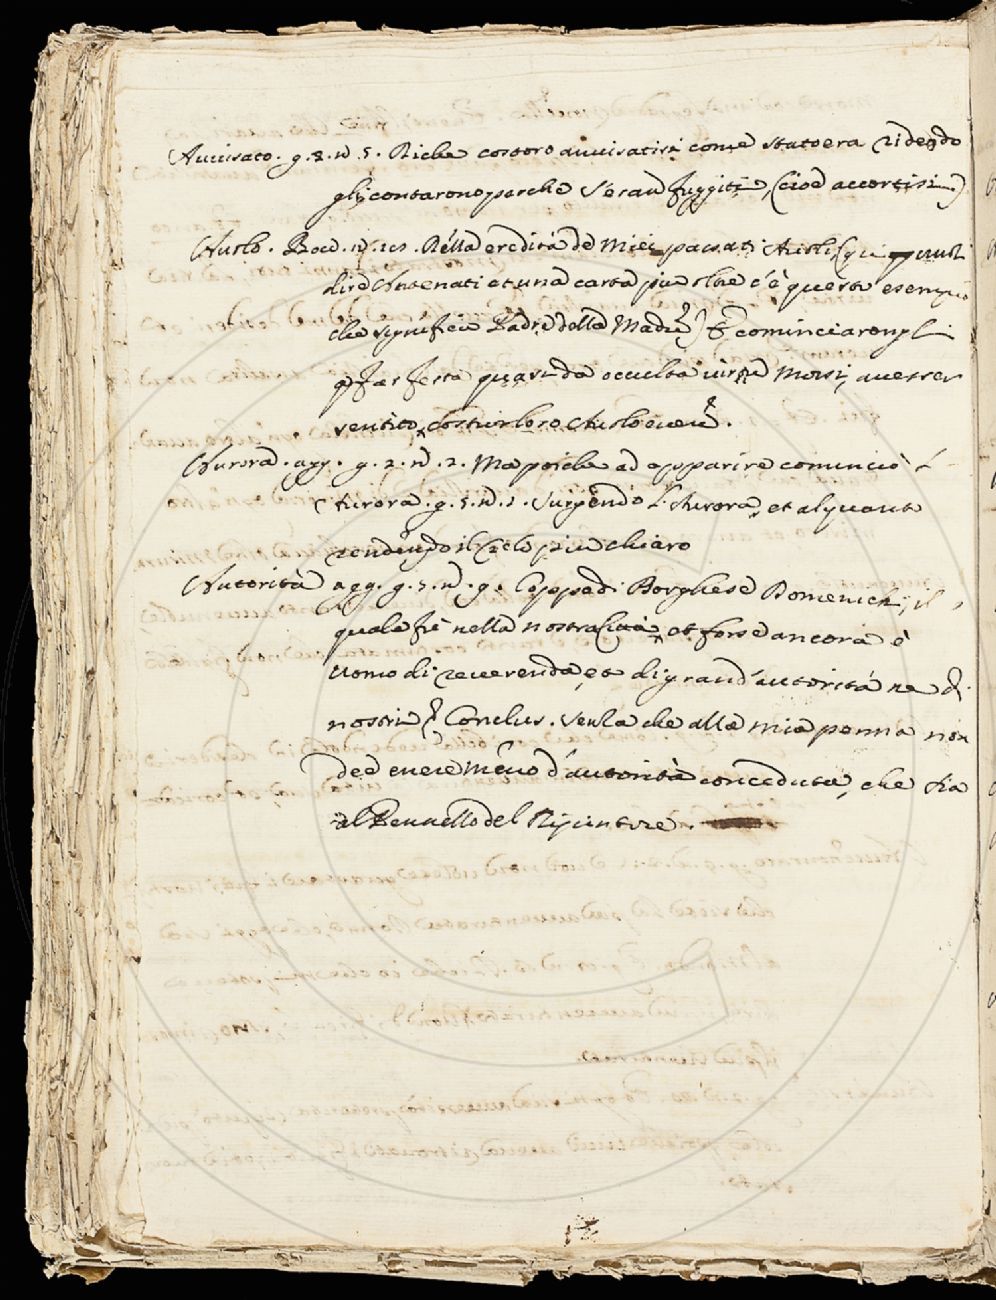 Auuisato. g. 8. n. 5. Di che costoro auuisatisi come stato era ridendo
gli contarono perche s'eran fuggiti, (cioè accortisi)
Auolo. Bocc. n. 101. Nella eredità de miei passati Auoli (qui
dire Antenati et una carta piu oltre c'è questo esempio
che significa Padre della Madre) Et cominciarongli
a far festa quasi da occulta virtù mossi, auesser
sentito costui loro Auolo essere.
Aurora. agg. g. 2. n. 2. Ma poiche ad apparire cominciò l'
Aurora. g. 5. n. 1. Surgendo l'Aurora, et alquanto
rendendo il Cielo piu chiaro
Autorità agg. g. 5. n. 9. Coppo di Borghese Domenichi, il
quale fu nella nostra Città, et forse ancora è
uomo di reuerenda, et di grand'autorità ne dì
nostri. Conclus. senza che alla mia penna non
dee essere meno d'autorità conceduta, che sia
al Pennello del Dipintore.